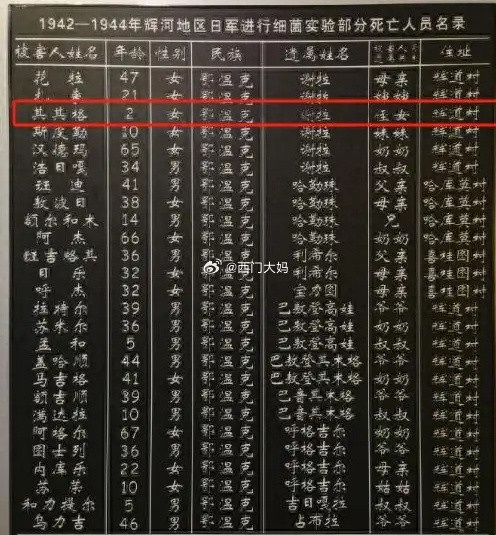 1942－1944年辉河地区日军进行细菌实验部分死亡人员名录
被害人姓名 年龄 性别 民族 遗属姓名 被害人与遗属关系 住址
花拉 47 女 鄂温克 谢拉 母亲 辉道村
扎来 21 女 鄂温克 谢拉 辉道村
其其格 2 女 鄂温克 谢拉 侄女 辉道村
斯皮勒 10 女 鄂温克 谢拉 妹妹 辉道村
汉德玛 65 女 鄂温克 谢拉 奶奶 辉道村
浩日嘎 34 男 鄂温克 谢拉 辉道村
班迪 41 男 鄂温克 哈勒珠 父亲 哈库莫村
敖波日 38 女 鄂温克 哈勒珠 母亲 哈库莫村
额尔和木 14 男 鄂温克 哈勒珠 兄 哈库莫村
阿杰 66 女 鄂温克 哈勒珠 奶奶 哈库莫村
旺吉略其 36 男 鄂温克 利希尔 父亲 喜桂图村
日乐 32 女 鄂温克 利希尔 母亲 喜桂图村
呼杰 32 女 鄂温克 宝力图 母亲 喜桂图村
拉特尔 39 男 鄂温克 巴敖登高娃 爷爷 辉道村
苏米尔 36 男 鄂温克 巴敖登高娃 奶奶 辉道村
孟和 5 男 鄂温克 巴敖登高娃 叔叔 辉道村
盖哈顺 44 男 鄂温克 巴敖登其木格 爷爷 辉道村
马吉格 41 女 鄂温克 巴敖登其木格 奶奶 辉道村
额吉顺 39 男 鄂温克 巴音其木格 爷爷 辉道村
满达拉 10 男 鄂温克 巴音其木格 叔叔 辉道村
阿格尔 67 女 鄂温克 呼格吉尔 奶奶 辉道村
图士列 36 男 鄂温克 呼格吉尔 爷爷 辉道村
内库乐 22 女 鄂温克 呼格吉尔 母亲 辉道村
苏荣 10 女 鄂温克 呼格吉尔 姑姑 辉道村
和力提尔 5 男 鄂温克 吉日嘎拉 叔叔 辉道村
乌力吉 46 男 鄂温克 占布拉 爷爷 辉道村
@西门大妈